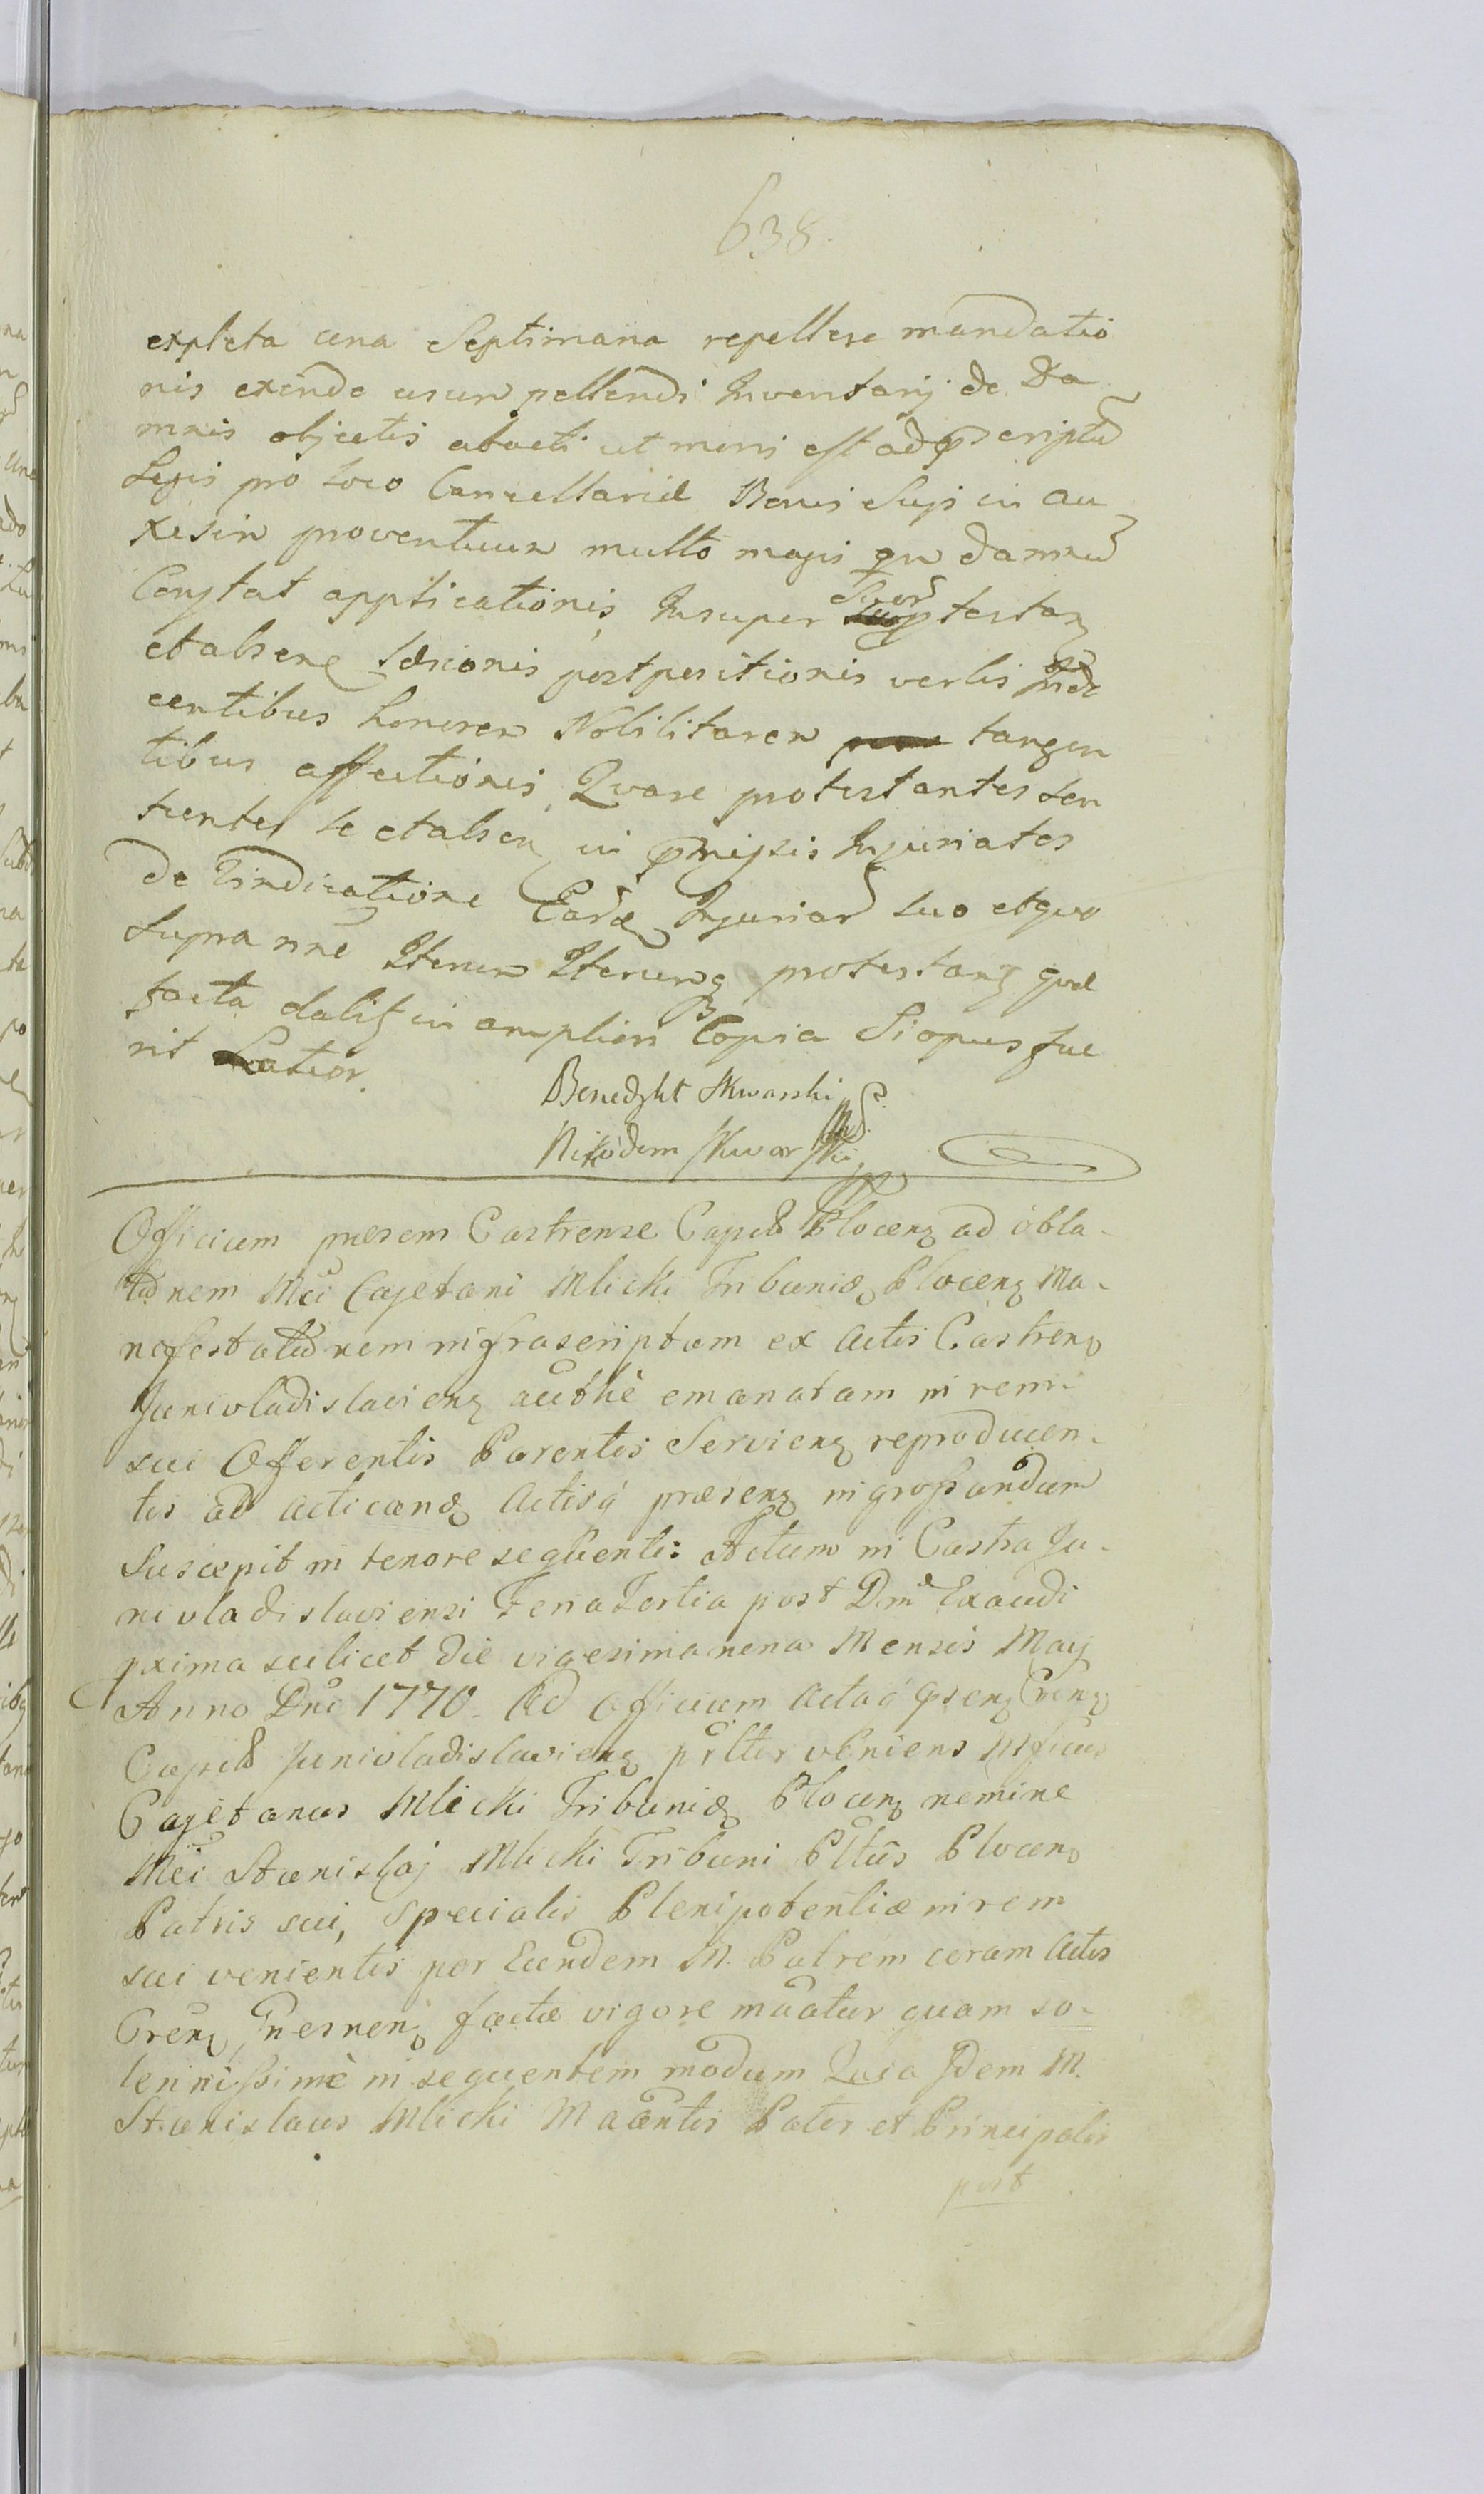 638.
expleta una Septimana repellere mandatio
nis exinde usum pellendi Inventarij de Da
mnis objectis abacti ut moris est ad pscriptū
Legis pro loco Cancellariæ Bonis Sujs in au
xesin proventuum multo magis qn damnū
Constat applicationis, Insuper Suor testan
et alsene læsionis postpositionis verbis
centibus honorem Nobilitarem tangen
tibus affectionis, Quare protestantes sen
tientes se et alsen in pmissis Injuriatos
de Vindicatione Earūdē Injuriar suo et quo
supra nne Iterum Iterumq protestant quæ
facta dabit in ampliori Copia Si opus fue
rit Latior.
Benedykt Skwarski
Nikodem Skwarski
Officium præsens Castrense Capitle Plocens ad obla-
tionem Mci Cajetani Mlicki Tribunidæ Plocens Ma-
nifestationem infrascriptam ex Actis Castrens
Junivladislaviens authe emanatam in rem
sui Offerentis Parentis Serviens reproducen-
tis ad acticand Actisq præsens ingrossandum
Suscepit in tenore seqūenti: Actum in Castro Ju-
nivladislaviensi Feria Tertia post Dm̄ Exaudi
pxima scilicet die vigesima nona Mensis Maij
Anno Dni 1770. Ad Officium Actaq psens Crens
Capitle Junivladislaviens pslter veniens Mficus
Cajetanus Mlicki Tribunidæ Plocens nomine
Mci Stanislaj Mlicki Tribuni Pltūs Plocens
Patris sui, specialis Plenipotentiæ in rem
sui venientis per Eundem M. Patrem coram Actis
Crens Gnesnens factæ vigore mñatur quam so-
lennissimè in sequentem modum Quia Idem M.
Stanislaus Mlicki Mñantis Pater et Principalis
post